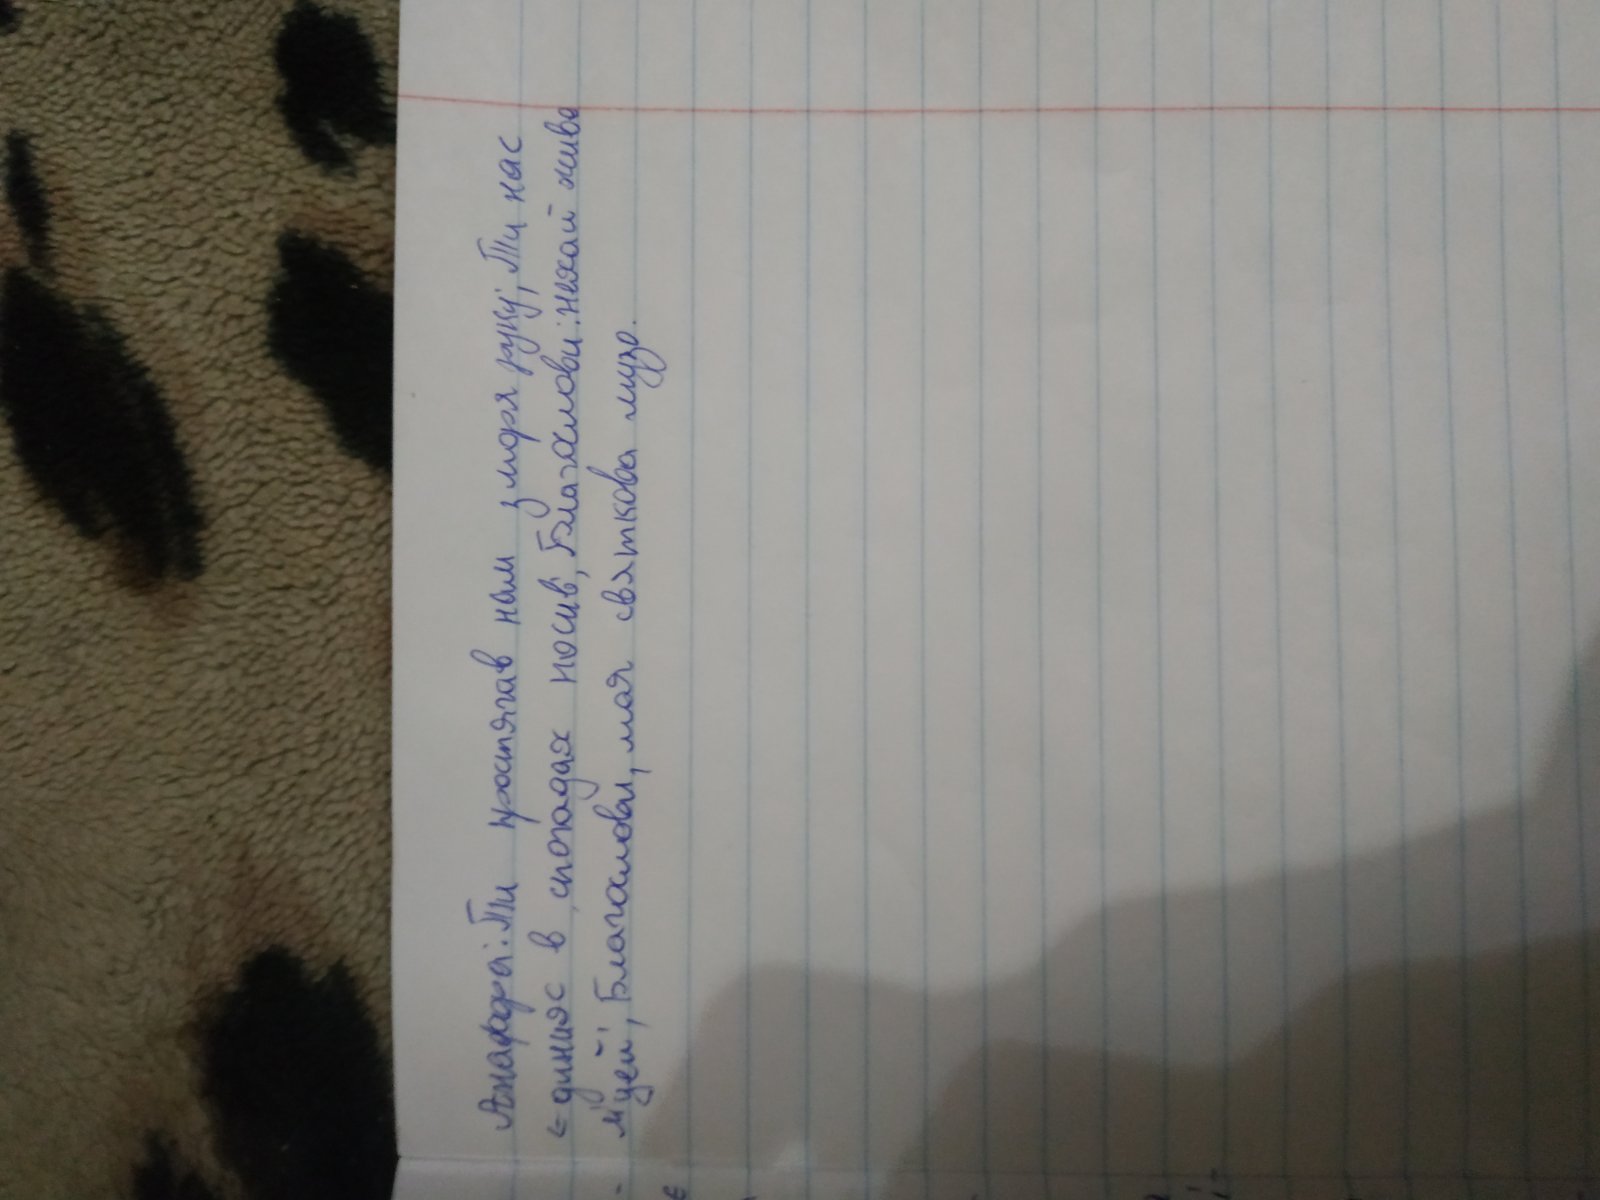 Анафора: "Ти простягав нам з моря руку", "Ти нас
єдиняє в споподах носив", "Благослови: Нехай живе
цей", "Благослови, моя святкова музо.